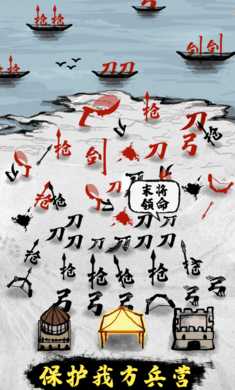 枪 枪
剑 剑
枪 枪 刀 刀
刀
枪 弓 枪
枪 剑 刀
刀 枪
枪 枪
末将
领命
刀 刀 刀 刀
刀 刀 刀 刀 刀 刀
枪 枪 枪 枪 枪
弓 弓 弓 弓 弓
保护我方兵营